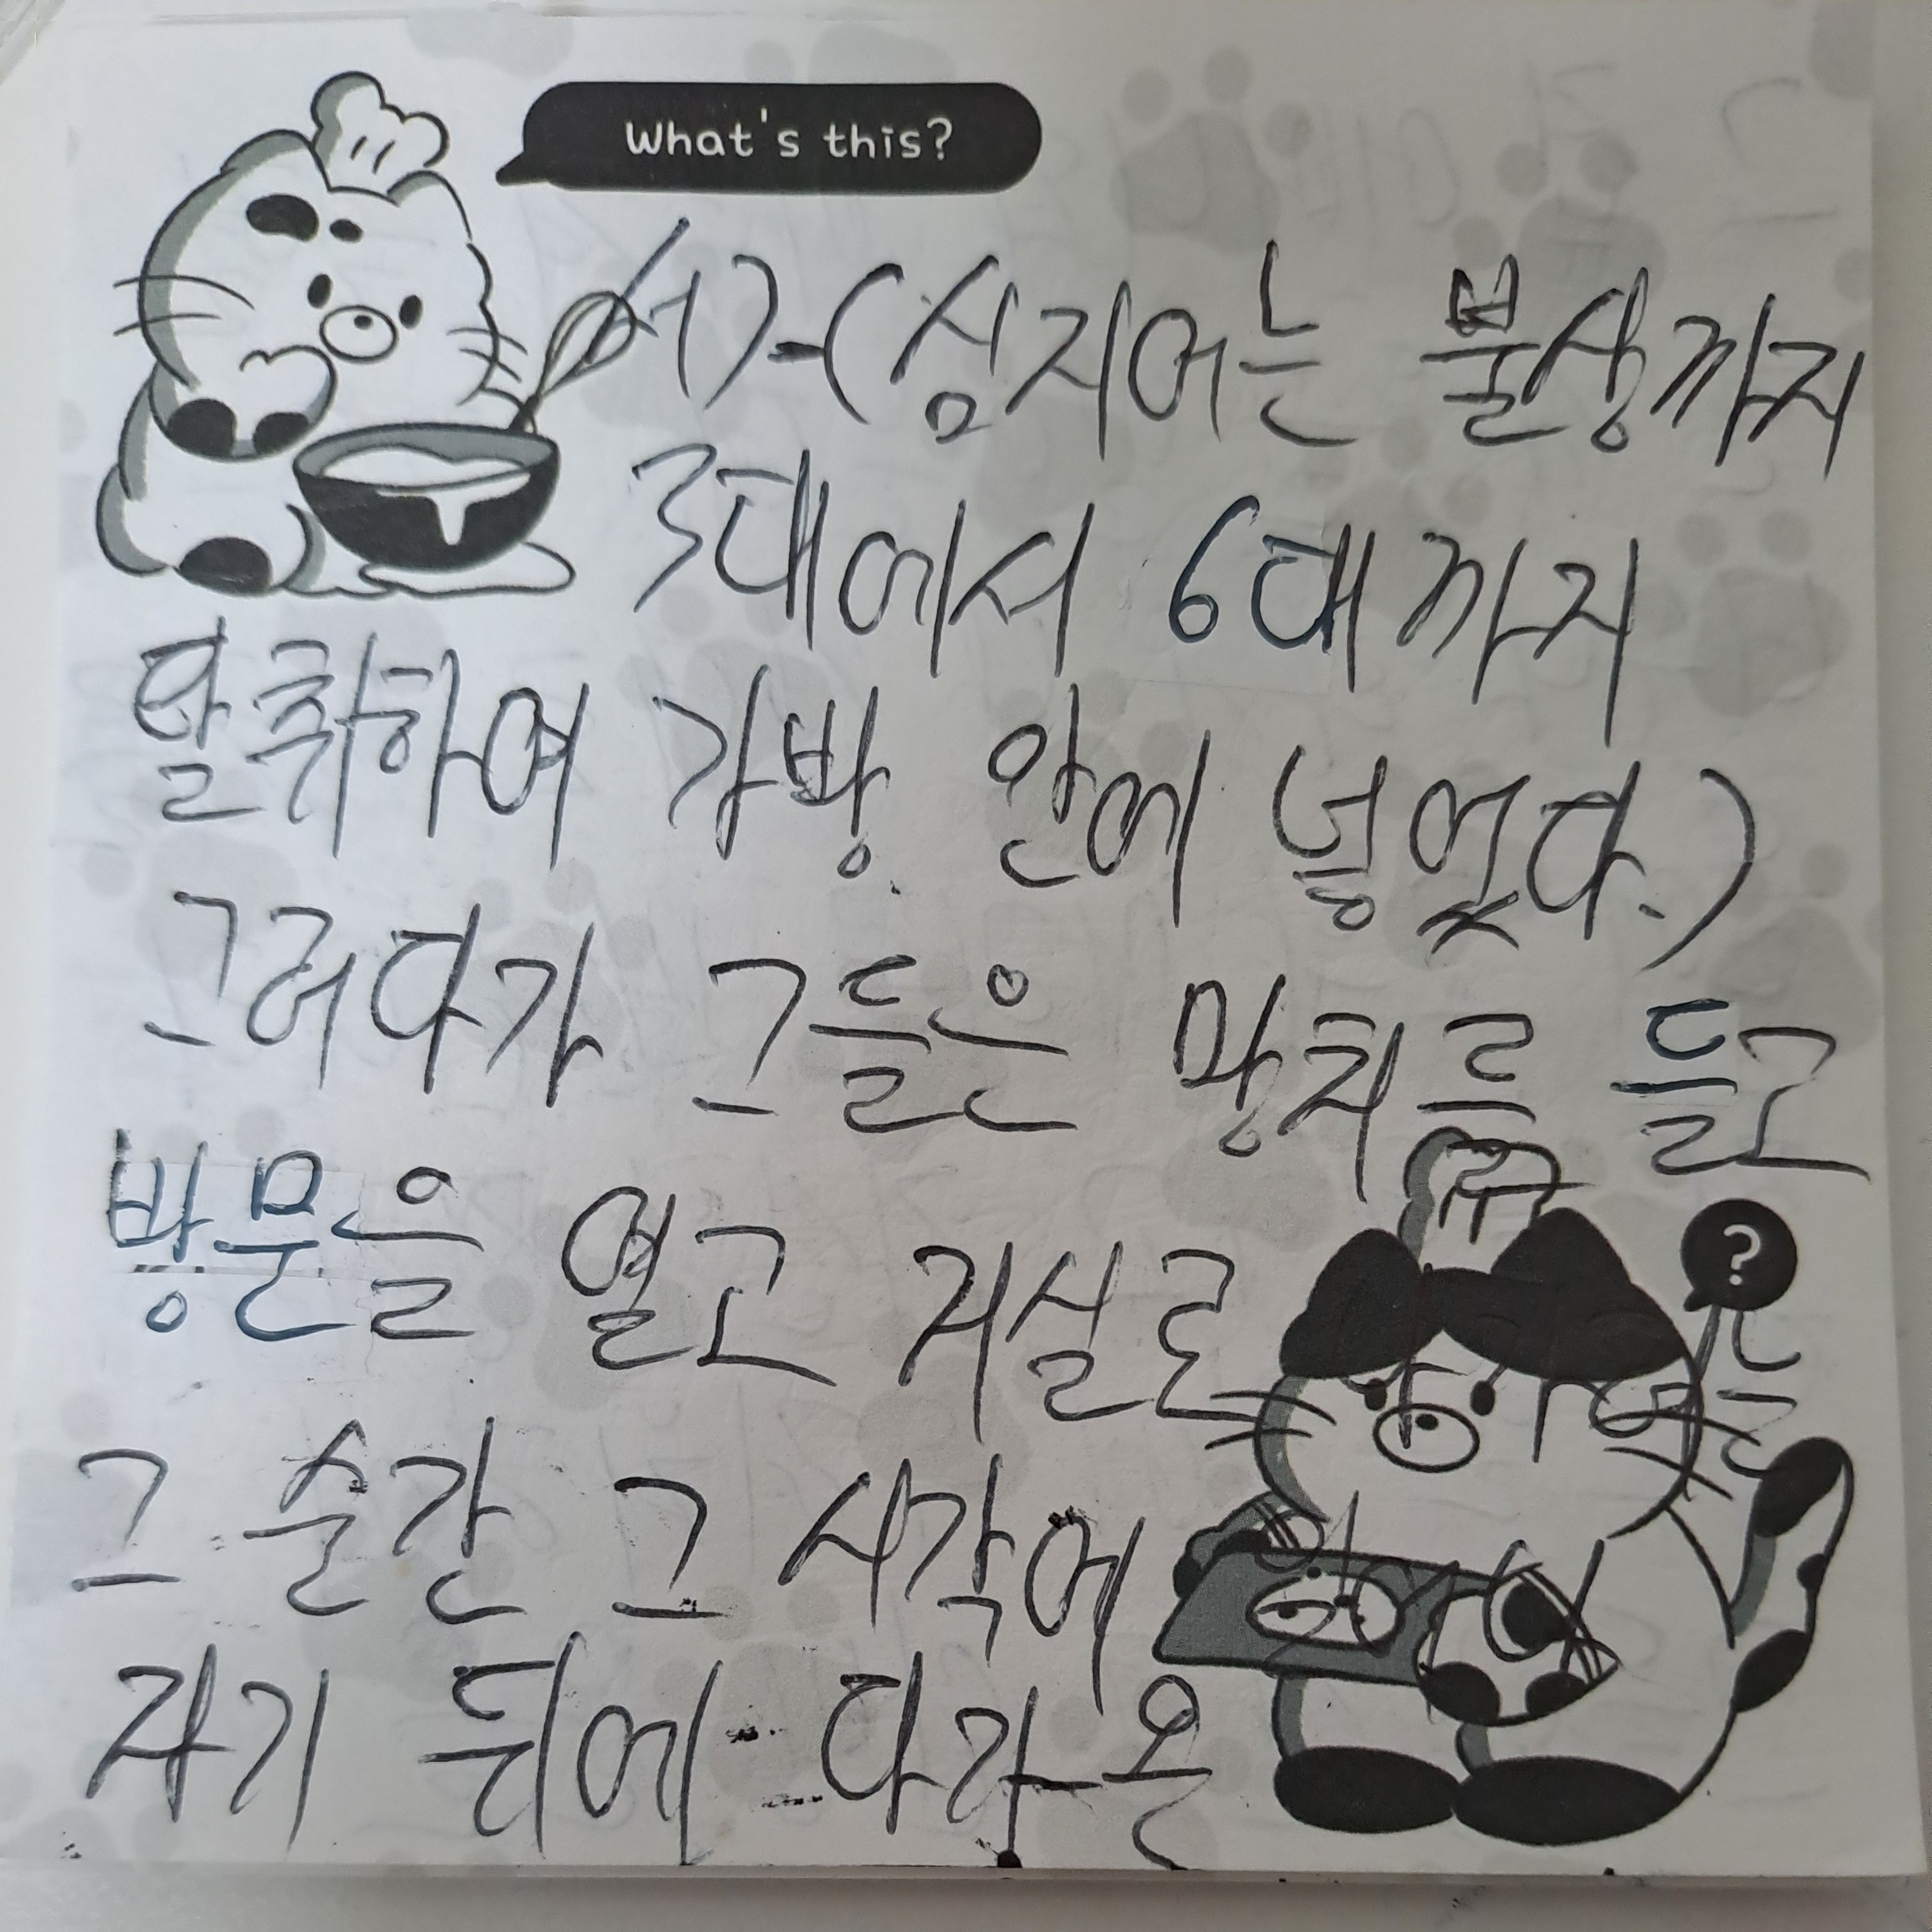 What's this?
서)-(심지어는 불상까지
3대에서 6대까지
탈취하여 가방 안에 넣었다.)
그러다가 그들은 망치르 들고
방문을 열고 거실로
?
그 순간 그 시각에
자기 뒤에 다가온